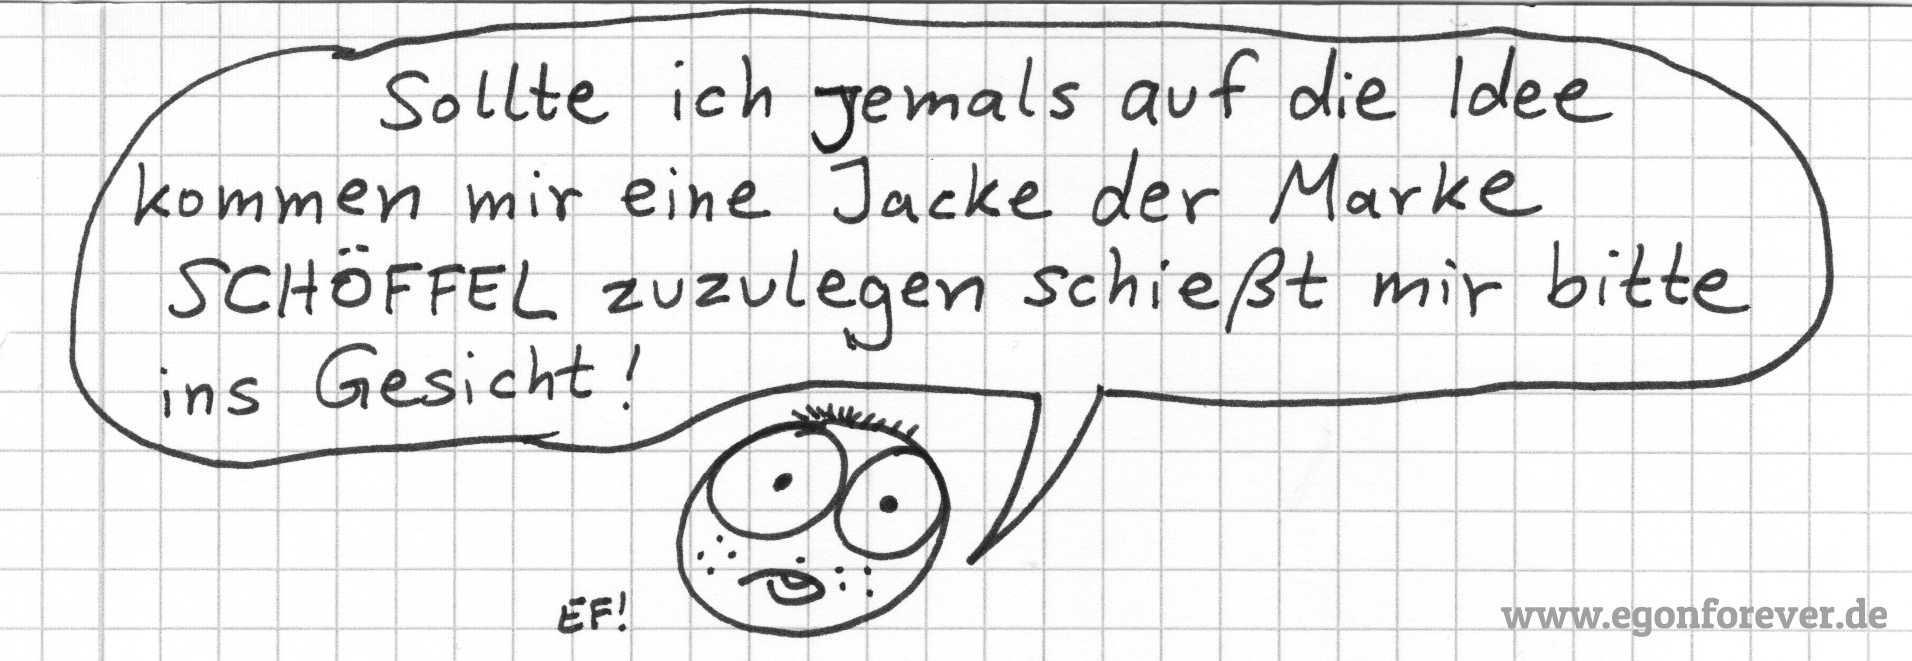 Sollte ich jemals auf die Idee
kommen mir eine Jacke der Marke
SCHÖFFEL zuzulegen schießt mir bitte
ins Gesicht!
EF!
www.egonforever.de